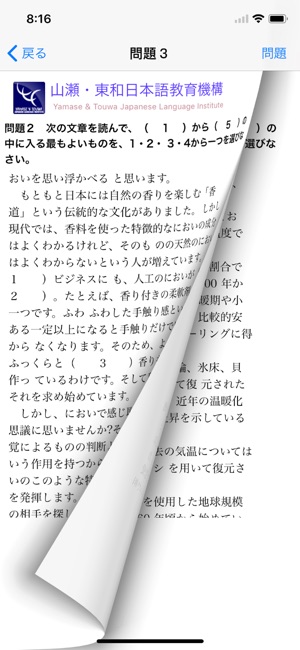 8:16
戻る
問題３
問題
山瀬・東和日本語教育機構
Yamase & Touwa Japanese Language Institute
問題２　次の文章を読んで、（　１　）から（　５　）の
中に入る最もよいものを、1・2・3・4から一つを選びな
さい。
おいを思い浮かべる と思います。
もともと日本には自然の香りを楽しむ「香
道」という伝統的な文化がありました。しかし
現代では、香料を使った特徴的なにおいの成分
はよくわかるけれど、そのも のの天然のにお
はよくわからないという人が増えています。
１　　）ビジネスに も、人工のにおいが
２　　）。たとえば、香り付きの柔軟
一つです。ふわ ふわした手触り感と
ある一定以上になると手触りだけで
から なくなります。そのため、よ
ふっくらと（　　３　　）香り
作っ ているわけです。そして
それを求め始めています。
しかし、においで感じ
思議に思いませんか?そ
覚によるものの判断
いう作用を持つから
いのこのような特
を発揮します。
の相手を探し
）の
選びな
、
お
度で
割合で
00 年か
暖期や小
比較的安
ーリングに得
、氷床、貝
て復 元された
近年の温暖化
昇を示している
去の気温については
シ を用いて復元さ
を使用した地球規模
年頃から始めてい